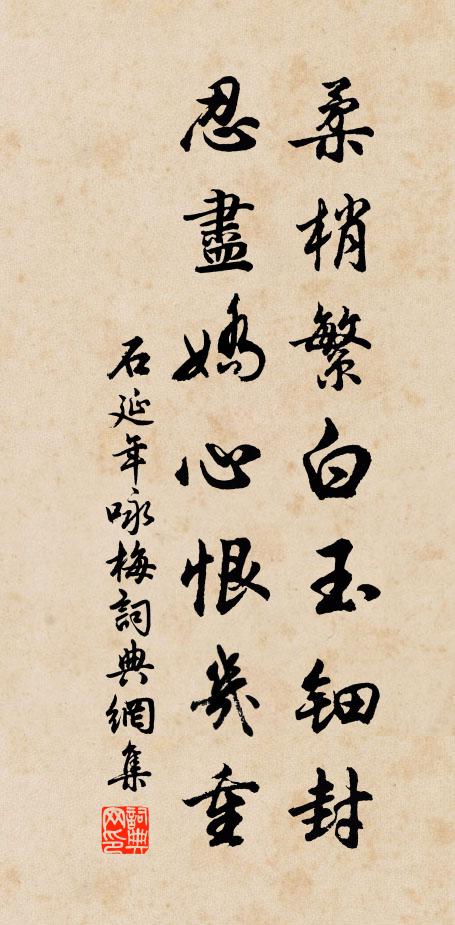 柔梢繁白玉鈿封
忍盡嬌心恨幾重
石延年咏梅詞典網集
詞典网印